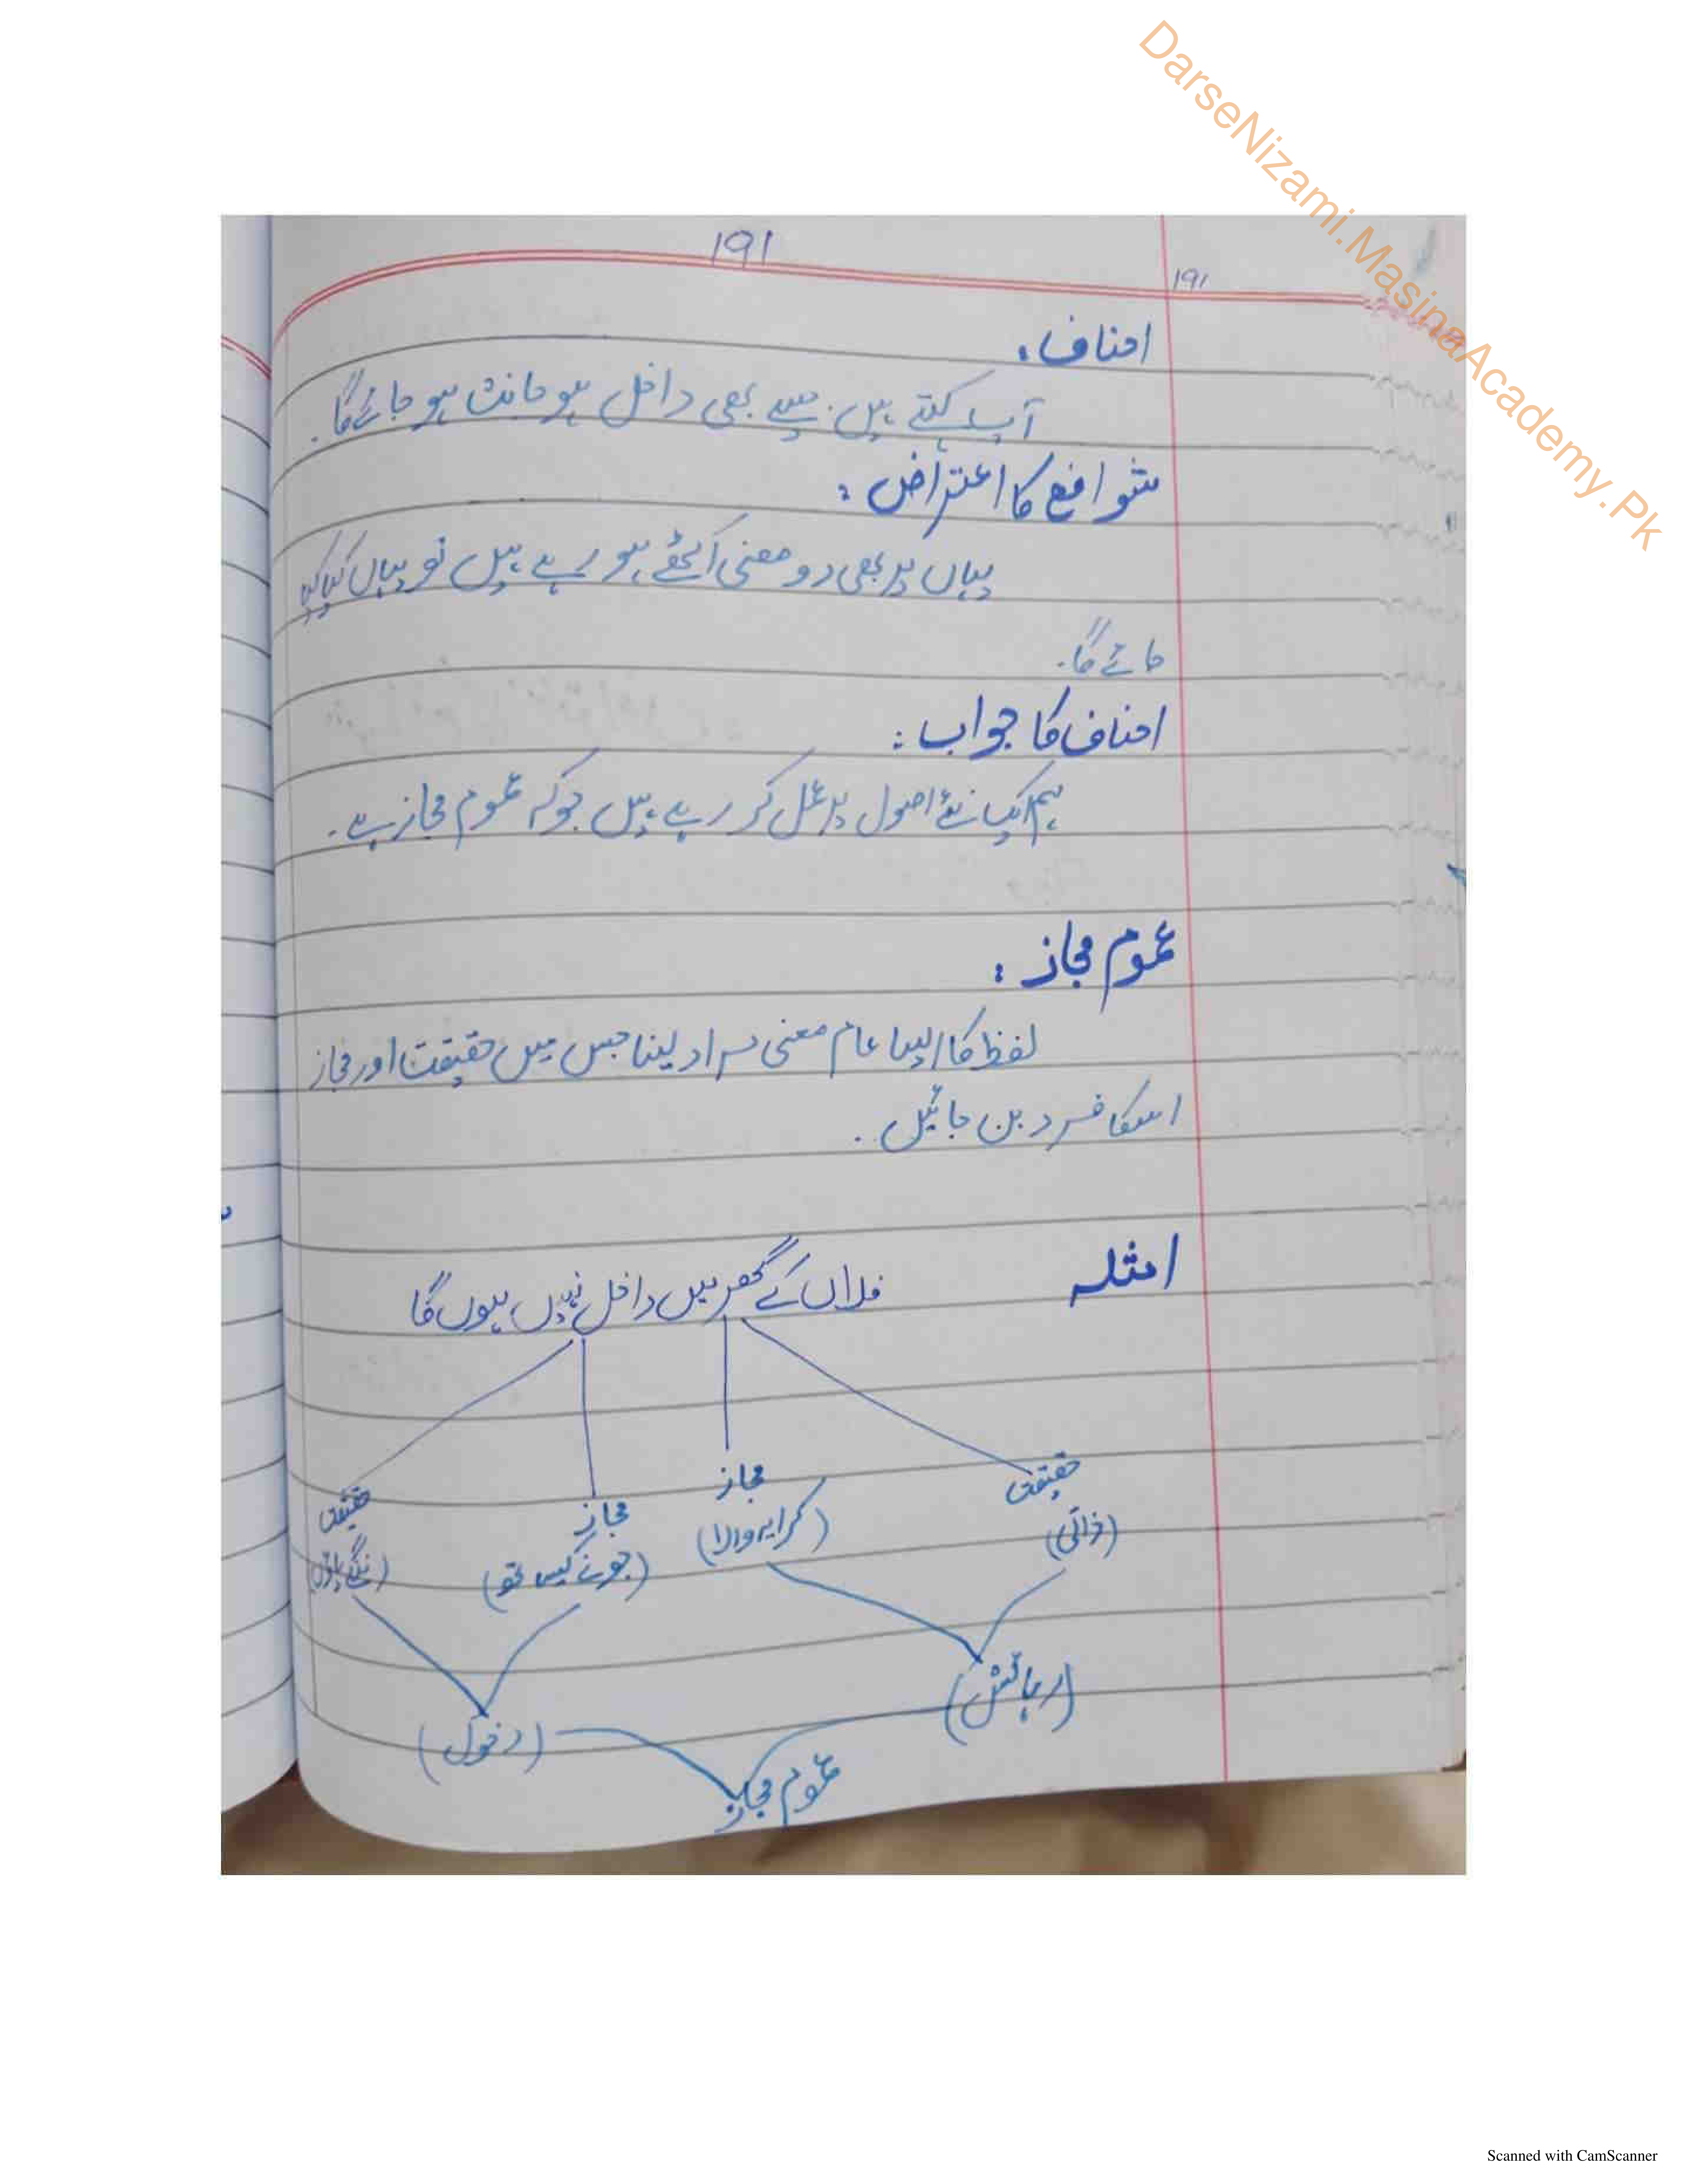 DarseNizami.MasinaAcademy.Pk
191
191
احناف:
آپ کہتے ہیں جیسے بھی داخل ہو حانث ہو جائے گا۔
شوافع کا اعتراض:
یہاں پر بھی دو معنی اکٹھے ہو رہے ہیں تو یہاں کیا کیا
جائے گا۔
احناف کا جواب:
ہم ایک نئے اصول پر عمل کر رہے ہیں جو کہ عموم مجاز ہے۔
عموم مجاز:
لفظ کا ایسا عام معنی مراد لینا جس میں حقیقت اور مجاز
اسکا فرد بن جائیں۔
امثلہ
فلاں کے گھر میں داخل نہیں ہوں گا
حقیقی مجاز مجاز حقیقی
(ذاتی) (کرایہ والا) (جوتے کیساتھ) (ننگے پاؤں)
(رہائش) (دخول)
عموم مجاز
Scanned with CamScanner